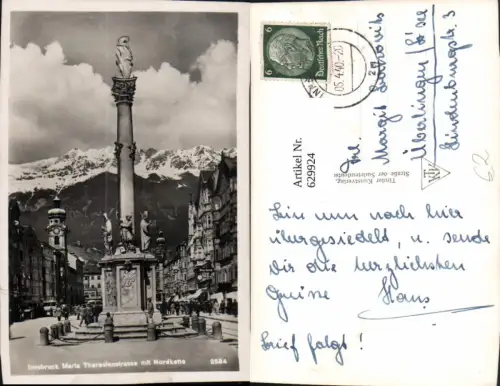 Innsbruck, Maria Theresienstrasse mit Nordkette 2584
6 6
Deutsches Reich
05.4.40.-20
Artikel Nr.
629924
Tiroler Kunstverlag,
Straße der Sudetendeutschen
Frl.
Margit
Überlingen/See
Lindenburgstr. 3
62
Bin nun nach hier
übergesiedelt, u. sende
Dir die herzlichsten
Grüsse Hans
Brief folgt!